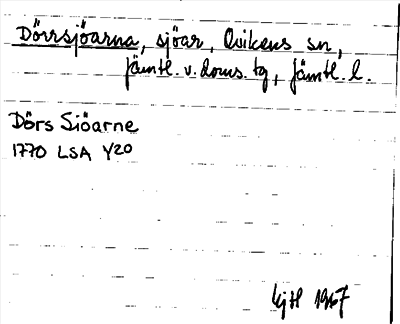 Dörrsjöarna, sjöar, Ovikens sn,
Jämtl. v. doms. tg, Jämtl. l.
Dörs Siöarne
1770 LSA Y20
1967